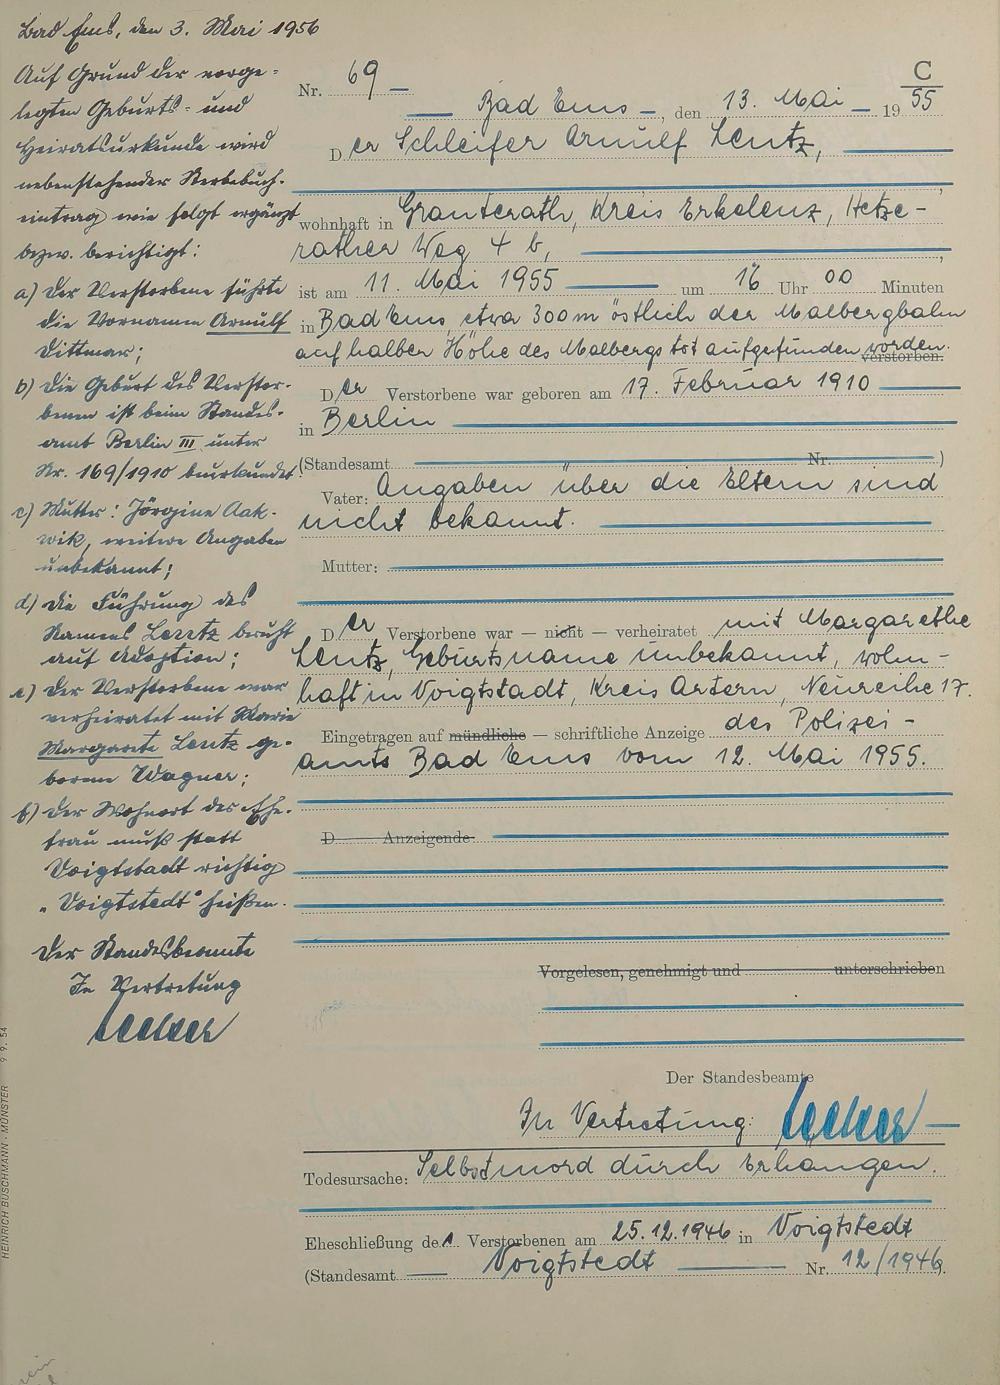 Bad Ems, den 3. Mai 1956
Auf Grund der vorge-
legten Geburts- und
Heiratsurkunde wird
nebenstehender Sterbebuch-
eintrag wie folgt ergänzt
bzw. berichtigt:
a) Der Verstorbene führte
die Vornamen Arnulf
Dittmar;
b) Die Geburt des Verstor-
benen ist beim Standes-
amt Berlin III unter
Nr. 169/1910 beurkundet.
c) Mutter: Jörgine Aak-
wik, weitere Angaben
unbekannt;
d) die Führung des
Namens Lentz beruht
auf Adoption;
e) der Verstorbene war
verheiratet mit Marie
Margarete Lentz ge-
borene Wagner;
f) der Wohnort der Ehe-
frau muß statt
Voigtstadt richtig
"Voigtstedt" heißen.
Der Standesbeamte
In Vertretung
C
Nr. 69
Bad Ems, den 13. Mai 1955
Der Schleifer Arnulf Lentz,
wohnhaft in Granterath, Kreis Erkelenz, Hetze-
rather Weg 4 b,
ist am 11. Mai 1955 um 16 Uhr 00 Minuten
in Bad Ems, etwa 300 m östlich der Malbergbahn
auf halber Höhe des Malbergs tot aufgefunden worden.
verstorben.
Der Verstorbene war geboren am 17. Februar 1910
in Berlin
(Standesamt Nr. )
Vater: Angaben über die Eltern sind
nicht bekannt.
Mutter:
Der Verstorbene war — nicht — verheiratet mit Margarethe
Lentz, Geburtsname unbekannt, wohn-
haft in Voigtstadt, Kreis Artern, Neureihe 17.
Eingetragen auf mündliche — schriftliche Anzeige des Polizei-
amts Bad Ems vom 12. Mai 1955.
D Anzeigende
Vorgelesen, genehmigt und unterschrieben
Der Standesbeamte
In Vertretung:
Todesursache: Selbstmord durch Erhängen.
Eheschließung des Verstorbenen am 25.12.1946 in Voigtstedt
(Standesamt Voigtstedt Nr. 12/1946)
HEINRICH BUSCHMANN · MÜNSTER 9 9. 54